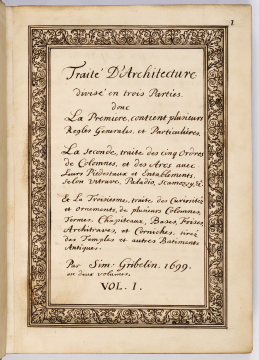 1
Traité D'Architecture
divisé en trois Parties.
donc
La Premiere, contient plusieurs
Regles Generales, et Particulières.
La Seconde, traite des cinq Ordres
de Colomnes, et des Arcs avec
Leurs Piédestaux et Entablements,
selon Vitruve, Paladio, Scamozzy, &c.
& La Troisieme, traite des Curiosités
et ornements, de plusieurs Colomnes,
Termes, Chapiteaux, Bases, Frises
Architraves, et Corniches, tirés
des Temples et autres Batiments
Antiques.
Par Sim: Gribelin. 1699.
en deux volumes.
VOL. I.